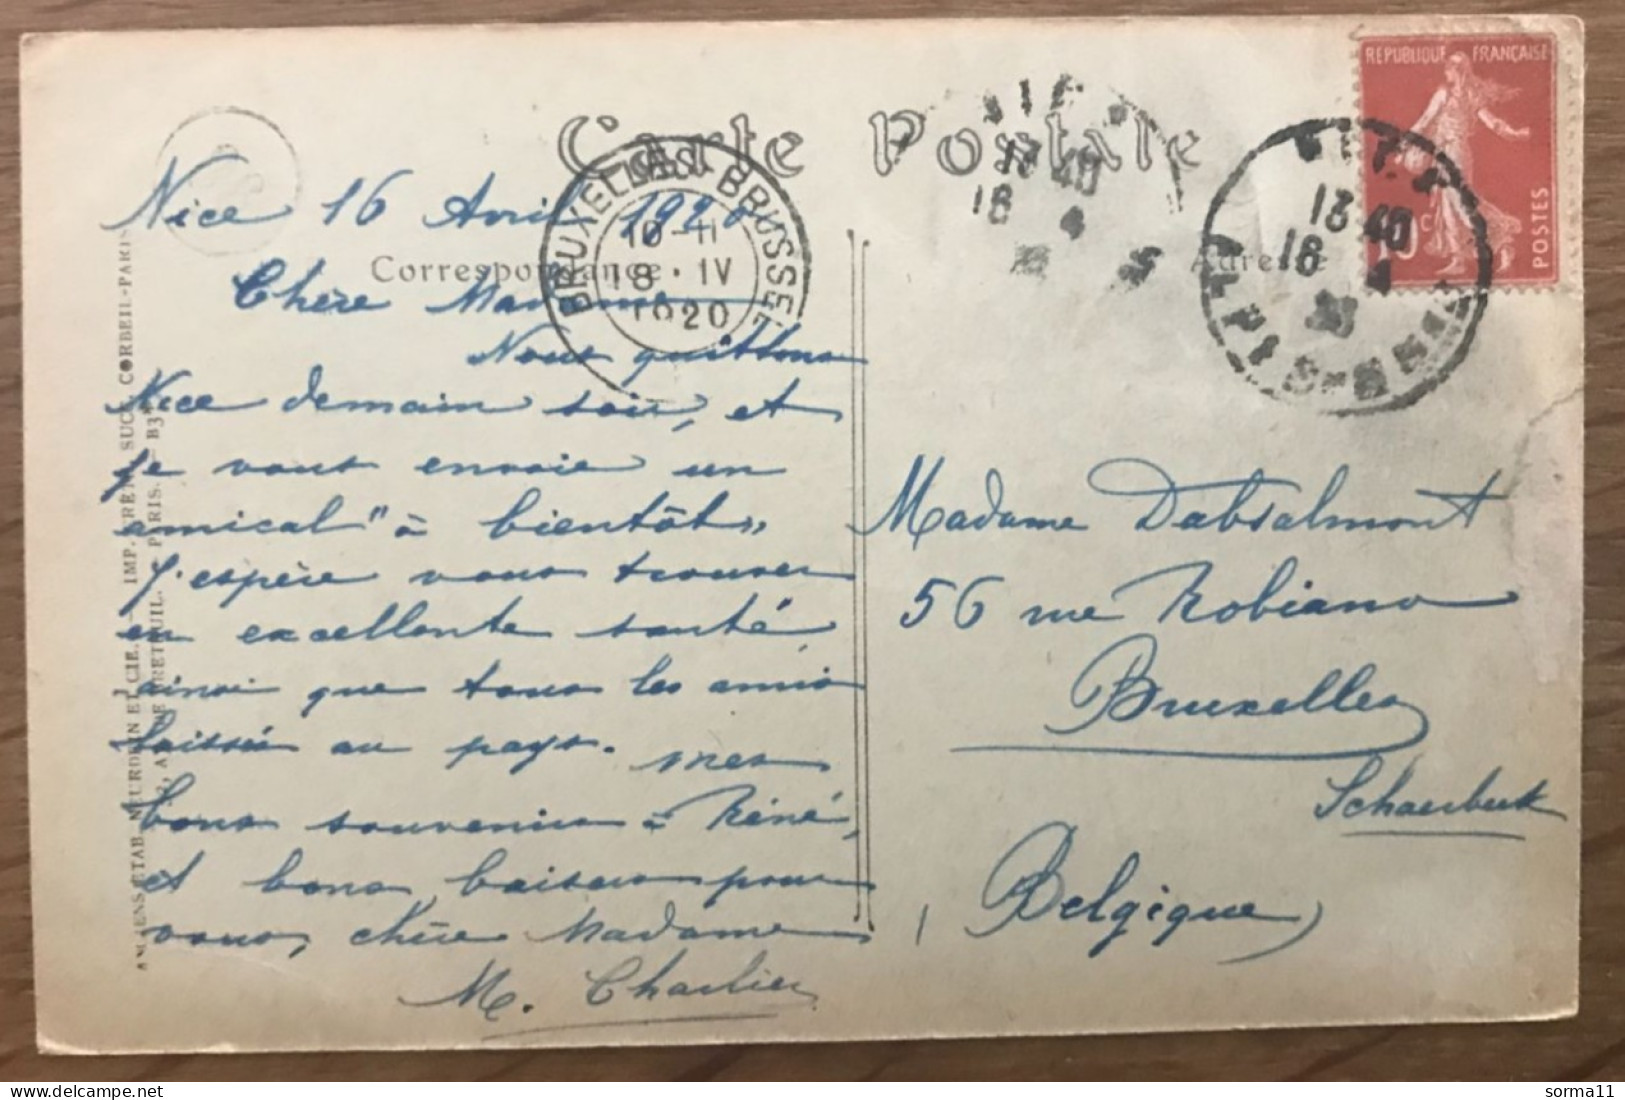 Carte Postale
REPUBLIQUE FRANÇAISE
POSTES
BRUXELLES BRUSSEL
10-11
18·IV
1920
13 40
16 4
13 40
16 4
ALPES-M
Correspondance
Adresse
Nice 16 Avril 1920
Chère Madame
Nous quittons
Nice demain soir, et
je vous envoie un
amical "à bientôt"
J'espère vous trouver
en excellente santé
ainsi que tous les amis
laissés au pays. Mes
bons souvenirs à Réné,
et bons baisers pour
vous, chère Madame
M. Charlier
Madame Dabsalmont
56 rue Robiano
Bruxelles
Schaerbeek
Belgique
ANCIENS ETAB. NEURDEIN ET CIE. IMP. CRÉTÉ, SUCC. CORBEIL-PARIS
52, AVENUE BRETEUIL. PARIS.
sorma11